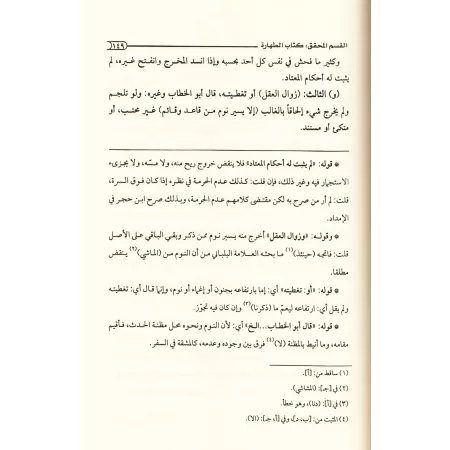 القسم المحقق: كتاب الطهارة
١٤٩
وكثير ما فحش في نفس كل أحد بحسبه وإذا انسد المخرج وانفتح غيره، لم
يثبت له أحكام المعتاد.
(و) الثالث: (زوال العقل) أو تغطيته، قال أبو الخطاب وغيره: ولو تلجم
ولم يخرج شيء إلحاقاً بالغالب (إلا يسير نوم من قاعد وقائم) غير محتب، أو
متكئ أو مستند.
* قوله: «لم يثبت له أحكام المعتاد» فلا ينقض خروج ريح منه، ولا مسّه، ولا يجزىء
الاستجمار فيه وغير ذلك، فإن قلت: كذلك عدم الحرمة في نظره إذا كان فوق السرة،
قلت: لم أر من صرح به لكن مقتضى كلامهم عدم الحرمة، وبذلك صرح ابن حجر في
الإمداد.
* وقوله: «وزوال العقل» أخرج منه يسير نوم ممن ذكر وبقي الباقي على الأصل
قلت: فاتجه (حينئذ)(١) ما بحثه العلامة البلباني من أن النوم من (الماشي)(٢) ينقض
مطلقا.
* قوله: «أو: تغطيته» أي: إما بارتفاعه بجنون أو إغماء أو نوم، وإنما قال أي: تغطيته
ولم يقل أي: ارتفاعه ليعمّ ما (ذكرنا)(٣) وإن كان فيه تجوّز.
* قوله: «قال أبو الخطاب...الخ» أي: لأن النوم ونحوه محل مظنة الحدث، فأقيم
مقامه، وما أنيط بالمظنة (لا)(٤) فرق بين وجوده وعدمه، كالمشقة في السفر.
(١) ساقط من: [أ].
(٢) في [جـ]: (المشاشي).
(٣) في [أ]: (دنا)، وهو خطأ.
(٤) المثبت من: [ب، د]، وفي [أ، جـ]: (الا).